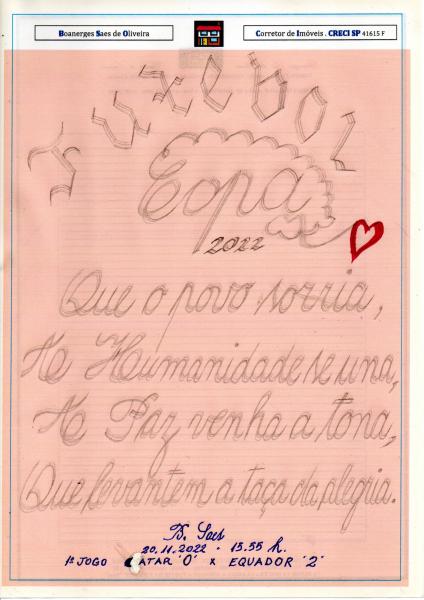 Boanerges Saes de Oliveira
Corretor de Imóveis . CRECI SP 41615 F
Futebol
Copa
2022
Que o povo sorria,
A Humanidade se una,
A Paz venha a tona,
Que levantem a taça da alegria.
B. Saes
20.11.2022 - 15.55 h.
1º JOGO CATAR "0" x EQUADOR "2"